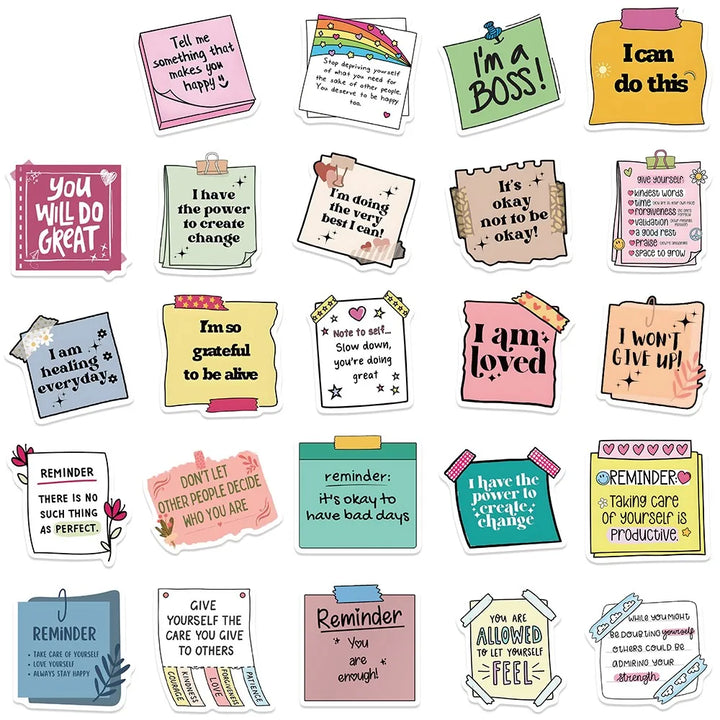 Tell me
something that
makes you
happy
Stop depriving yourself
of what you need for
the sake of other people.
You deserve to be happy
too.
I'm a
BOSS!
I can
do this
YOU
WILL DO
GREAT
I have
the power
to create
change
I'm doing
the very
best I can!
It's
okay
not to be
okay!
give yourself:
kindest words
time
forgiveness
validation
a good rest
praise
space to grow
I am
healing
everyday
I'm so
grateful
to be alive
Note to self...
Slow down,
you're doing
great
I am
loved
I WON'T
GIVE UP!
REMINDER
THERE IS NO
SUCH THING
AS PERFECT.
DON'T LET
OTHER PEOPLE DECIDE
WHO YOU ARE
reminder:
it's okay to
have bad days
I have the
power to
create
change
REMINDER:
Taking care
of yourself is
PRODUCTIVE.
REMINDER
• TAKE CARE OF YOURSELF
• LOVE YOURSELF
• ALWAYS STAY HAPPY
GIVE
YOURSELF THE
CARE YOU GIVE
TO OTHERS
COURAGE
KINDNESS
LOVE
FORGIVENESS
PATIENCE
Reminder
You
are
enough!
YOU ARE
ALLOWED
TO LET YOURSELF
FEEL
WHILE YOU MIGHT
BE DOUBTING yourself
OTHERS COULD BE
ADMIRING YOUR
strength